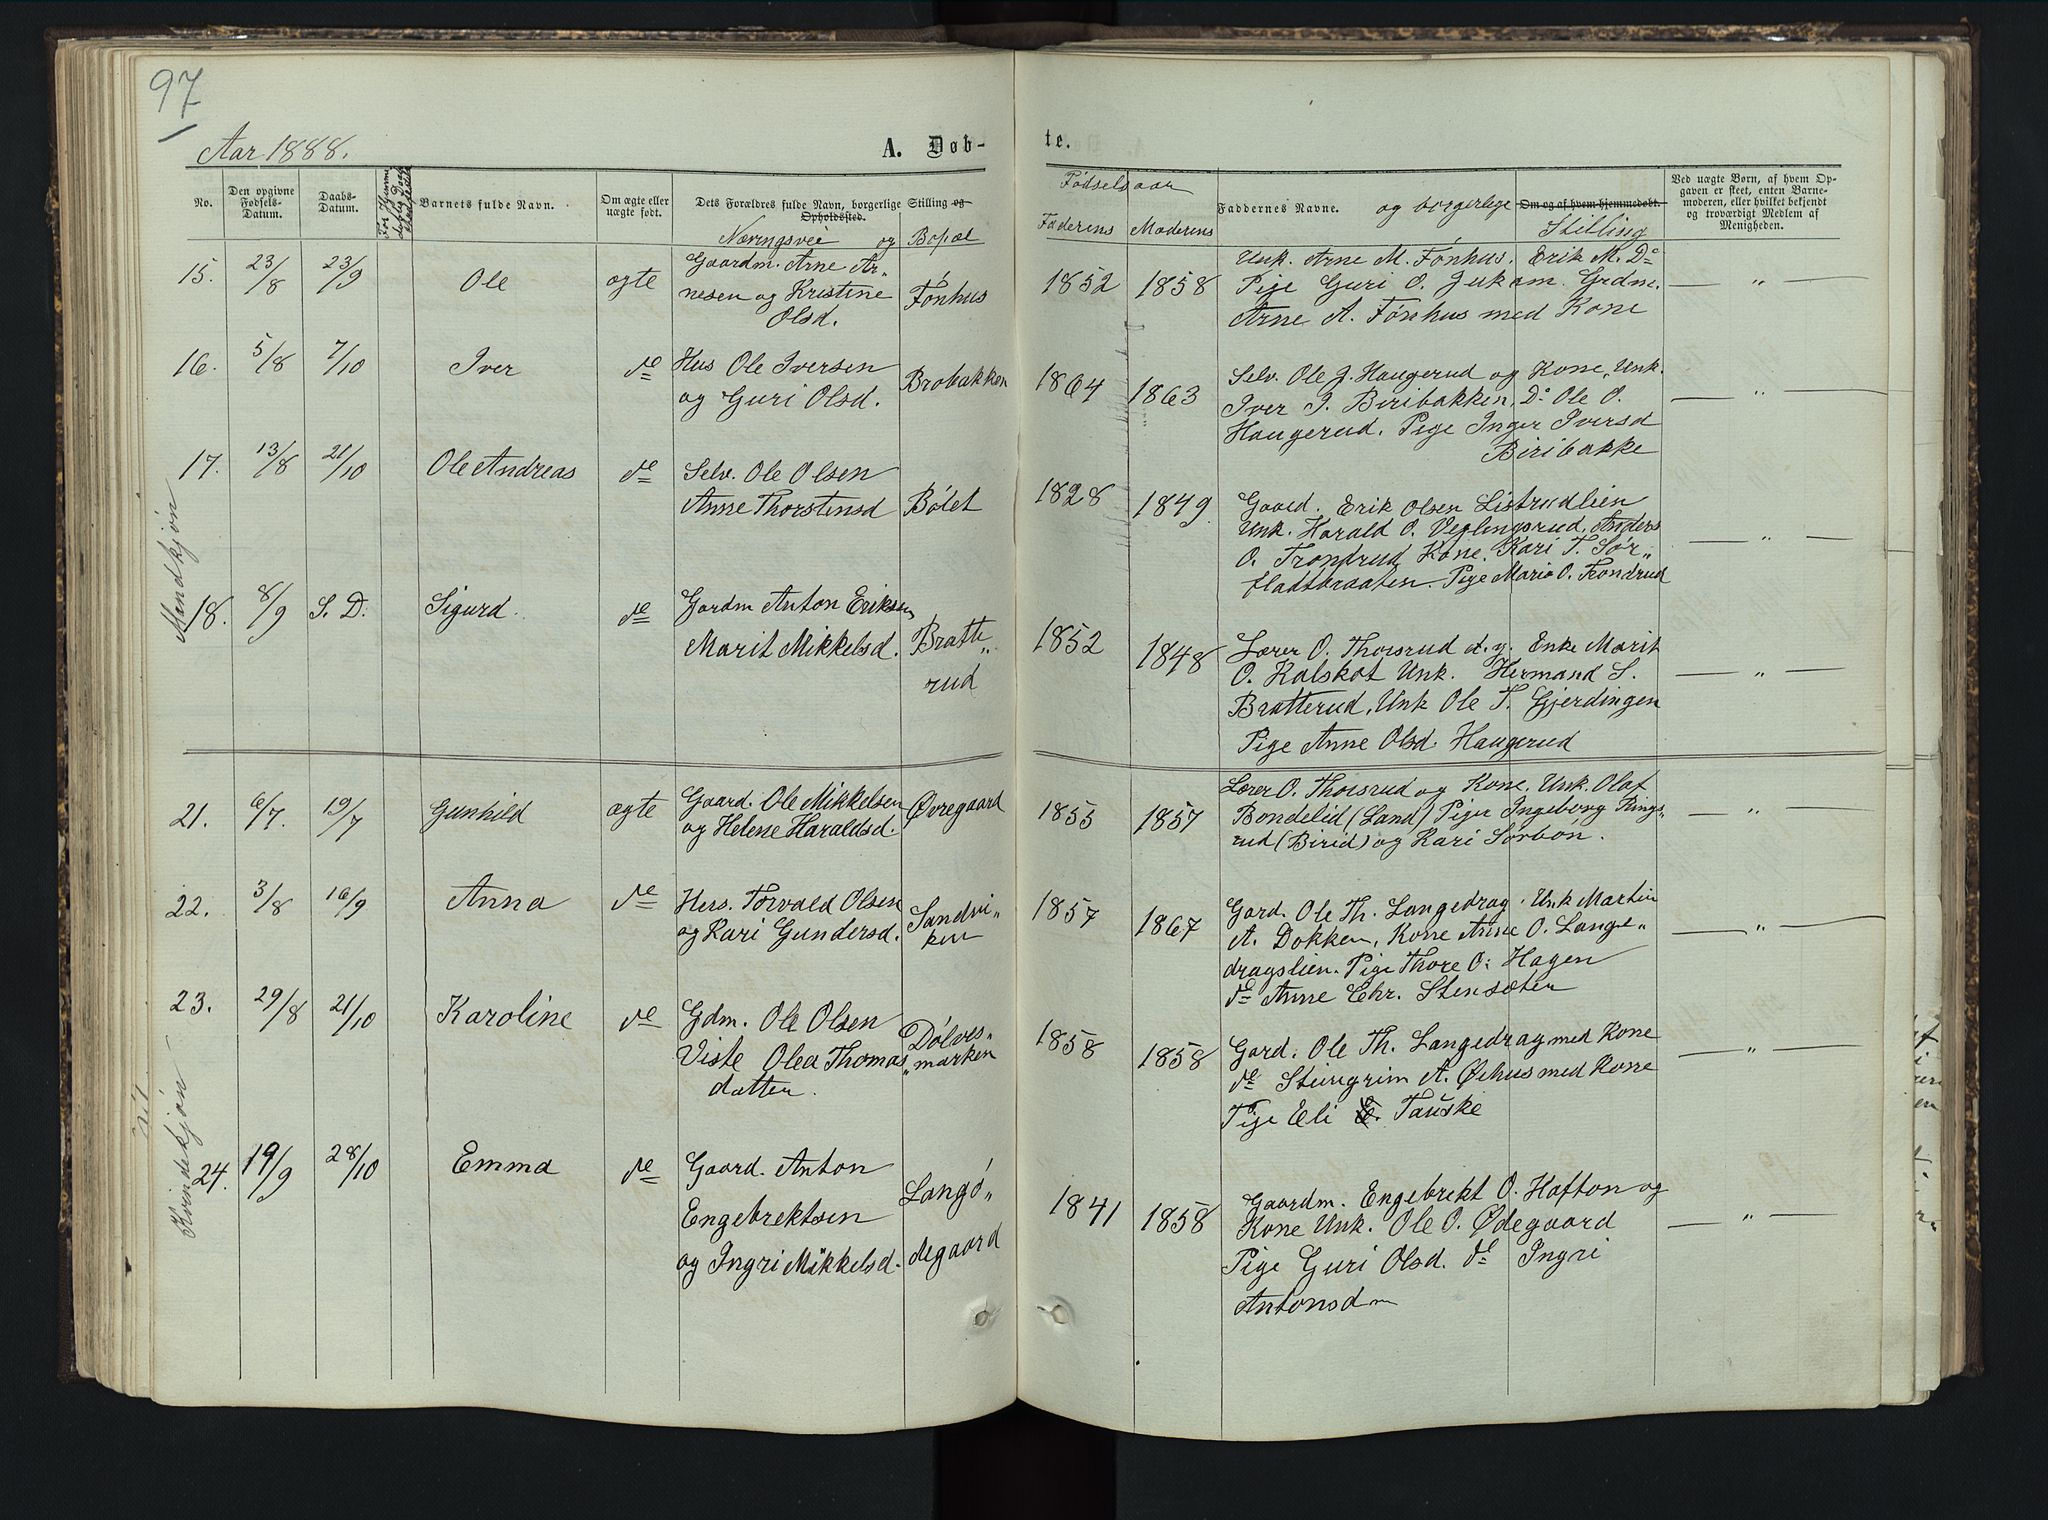 97
Aar 1888.
A. Døb-
te.
No.
Den opgivne Fødsels-Datum.
Daabs-Datum.
Barnets fulde Navn.
Om ægte eller uægte født.
Dets Forældres fulde Navn, borgerlige Stilling og Opholdssted.
Næringsvei og Bopæl
Fødselsaar
Faderens Moderens
Faddernes Navne.
og borgerlige Stilling
Om og af hvem hjemmedøbt.
Ved uægte Børn, af hvem Op-
gaven er skeet, enten Barne-
moderen, eller hvilket bekjendt
og troværdigt Medlem af
Menigheden.
Mandkjøn
15. 23/8 23/9 Ole ægte
Gaardm. Arne Ar-
nesen og Kristine
Olsd.
Fønhus
1852 1858
Unk. Arne M. Fønhus. Erik M. Do
Pige Guri O. Jukam. Grdm.
Arne A. Fønhus med Kone
— " —
16. 5/8 7/10 Iver de
Hus Ole Iversen
og Guri Olsd.
Brobakken
1864 1863
Selv. Ole J. Haugerud og Kone, Unk.
Iver I. Biribakken, Do Ole O.
Haugerud. Pige Inger Iversd
Biribakke
— " —
17. 13/8 21/10 Ole Andreas de
Selv. Ole Olsen
Anne Thorstensd
Bølet
1828 1849
Gaard. Erik Olsen Listrudlien
Unk. Harald O. Veglingsrud, Anders
O. Trondrud Kone. Kari T. Sør„
fladtbraaten. Pige Maria O. Trondrud
— " —
18. 8/9 S. D. Sigurd. de
Gardm Anton Eriksen
Marit Mikkelsd.
Bratte„
rud
1852 1848
Lærer O. Thorsrud d. y. Enke Marit
O. Kalskot Unk. Hermand S.
Bratterud, Unk Ole T. Gjerdingen
Pige Anne Olsd. Haugerud
— " —
Kvindekjøn
21. 6/7. 19/7 Gunhild ægte
Gaard. Ole Mikkelsen
og Helene Haraldsd.
Øvregaard
1855 1857
Lærer O. Thorsrud og Kone. Unk. Olaf
Bondelid (Land) Piger Ingeborg Rings„
rud (Birid) og Kari Sørbøn.
— " —
22. 3/8 16/9 Anna de
Hus. Torvald Olsen
og Kari Gundersd.
Sandvi„
ken
1857 1867
Gard. Ole Th. Langedrag. Unk Martin
A. Dokken, Kone Anne O. Lange„
dragslien. Pige Thore O. Hagen
de Anne Chr. Stensæter
— " —
23. 29/8 21/10 Karoline de
Gdm. Ole Olsen
Viste Olea Thomas„
datter.
Dølves„
marken
1858 1858
Gard. Ole Th. Langedrag med Kone
de Steingrim A. Ørhus med Kone
Pige Eli E. Tauske
— " —
24. 19/9 28/10 Emma de
Gaard. Anton
Engebrektsen
og Ingri Mikkelsd.
Langø„
degaard
1841 1858
Gaardm. Engebrekt O. Hafton og
Kone Unk. Ole O. Ødegaard
Pige Guri Olsd. de Ingri
Antonsd
— " —